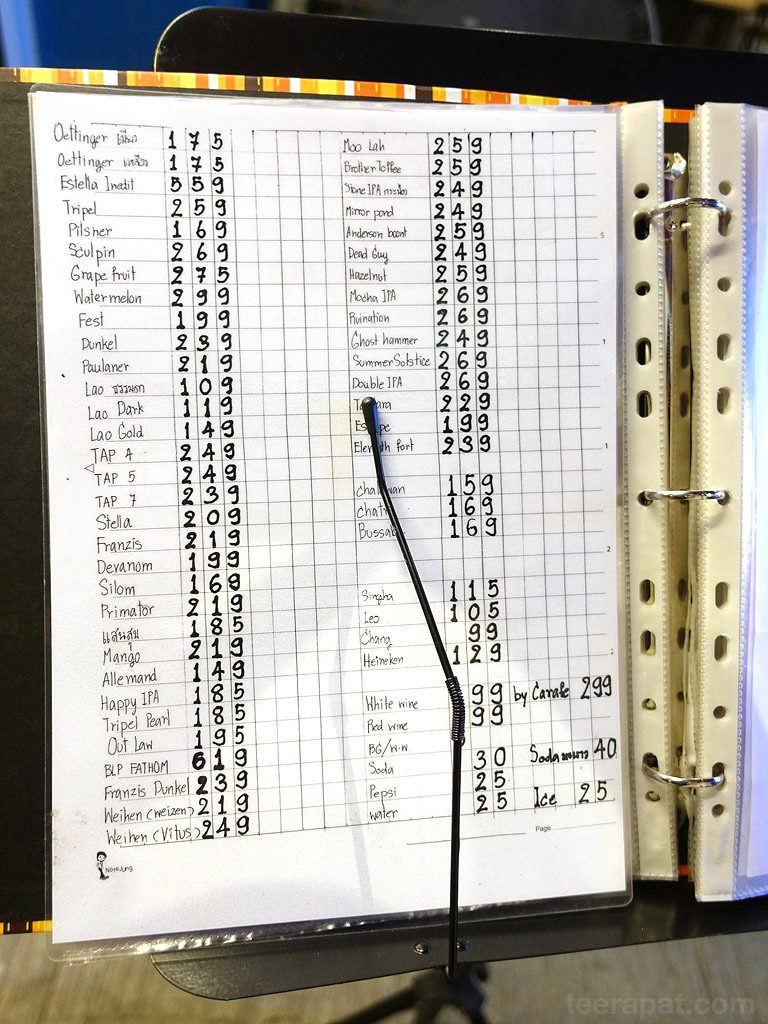 Oettinger 175
Oettinger 175
Estella Inedit 559
Tripel 259
Pilsner 169
Sculpin 269
Grape fruit 275
Watermelon 299
Fest 199
Dunkel 239
Paulaner 219
Lao ธรรมดา 109
Lao Dark 119
Lao Gold 149
TAP 4 249
TAP 5 249
TAP 7 239
Stella 209
Franzis 219
Devanom 199
Silom 169
Primator 219
แสนสุข 185
Mango 219
Allemand 149
Happy IPA 185
Tripel Pearl 185
Out Law 195
BLP FATHOM 619
Franzis Dunkel 239
Weihen (weizen) 219
Weihen (Vitus) 249
Moo Lah 259
Brother Toffee 259
Stone IPA 249
Mirror pond 249
Anderson boont 259
Dead Guy 249
Hazelnut 259
Mocha IPA 269
Ruination 269
Ghost hammer 249
Summer Solstice 269
Double IPA 269
229
199
Eleventh fort 239
159
169
169
Singha 115
Leo 105
Chang 99
Heineken 129
White wine 99 by Carafe 299
Red wine 99
BG/w.w
Soda 30 Soda 40
Pepsi 25
water 25 Ice 25
Page
teerapat.com